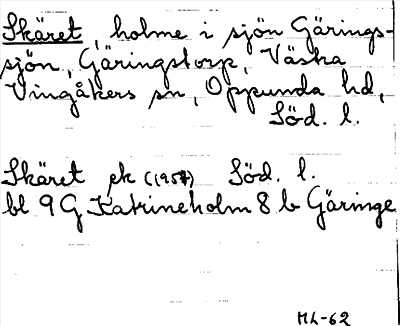 Skäret, holme i sjön Gärings-
sjön, Gäringstorp, Västra
Vingåkers sn, Oppunda hd,
Söd. l.
Skäret ek (1957) Söd. l.
bl 9 G Katrineholm 8 b Gäringe
ML-62